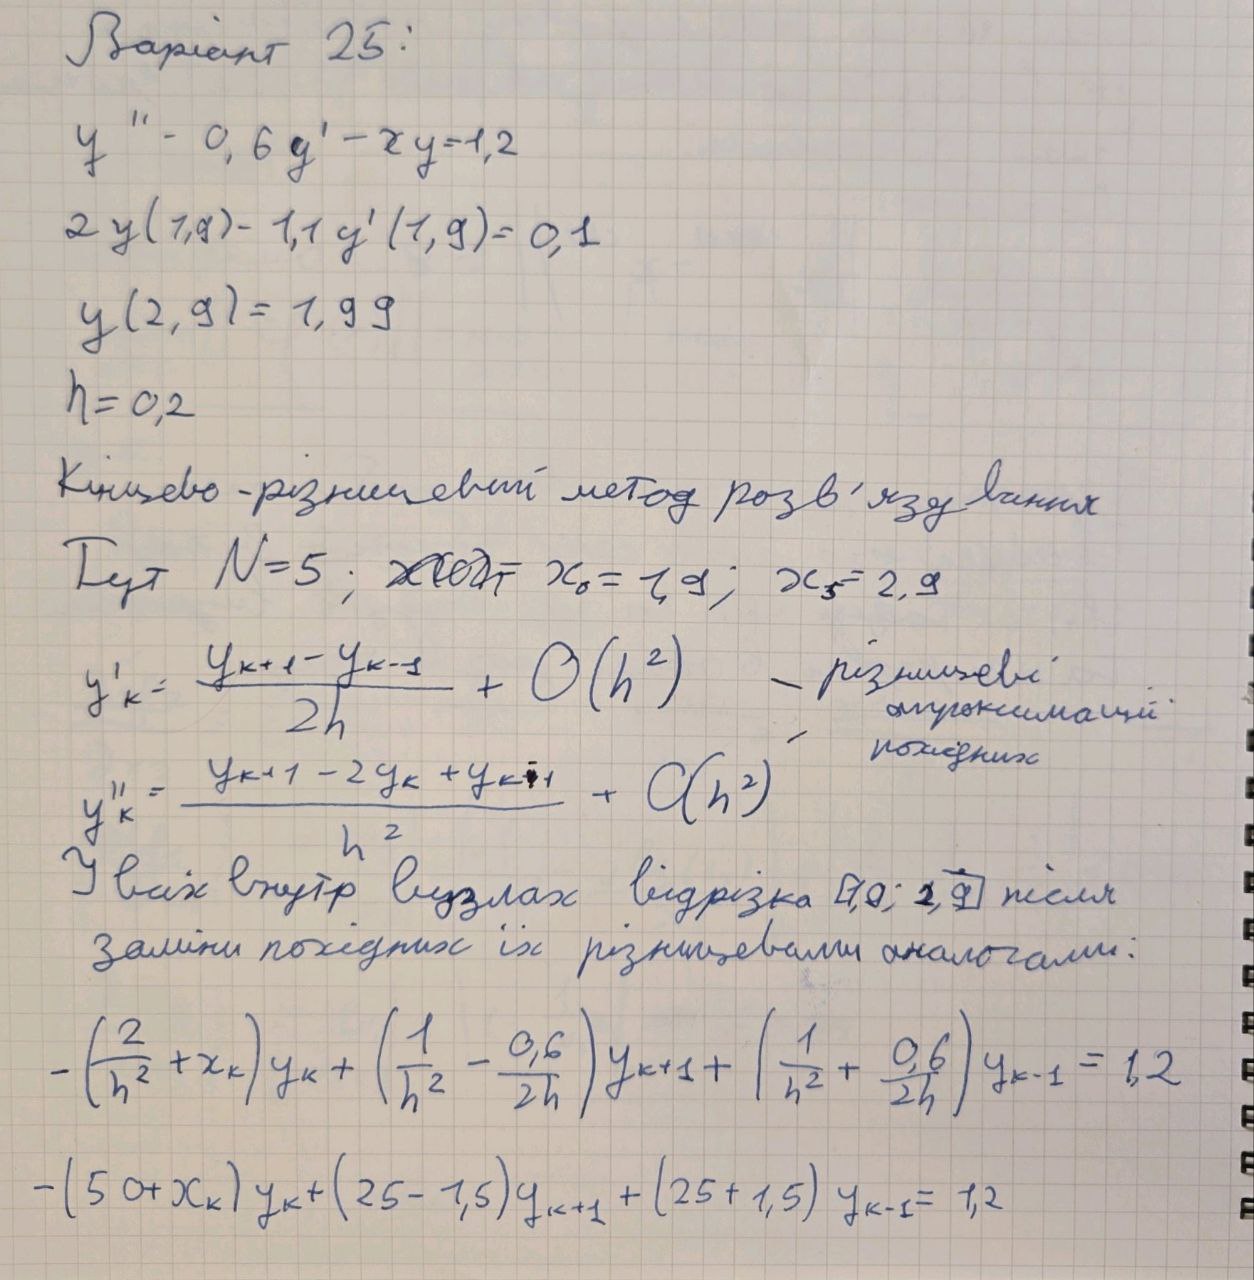 Варіант 25:
y'' - 0,6y' - xy = 1,2
2y(1,9) - 1,1y'(1,9) = 0,1
y(2,9) = 1,99
h = 0,2
Кінцево-різницевий метод розв'язування
Тут N=5; x₀ = 1,9; x₅ = 2,9
y'ₖ = (yₖ₊₁ - yₖ₋₁)/(2h) + O(h²) - різницеві апроксимації похідних
y''ₖ = (yₖ₊₁ - 2yₖ + yₖ₋₁)/h² + O(h²)
У всіх внутр вузлах відрізка [1,9; 2,9] після
заміни похідних їх різницевами аналогами:
-(2/h² + xₖ)yₖ + (1/h² - 0,6/2h)yₖ₊₁ + (1/h² + 0,6/2h)yₖ₋₁ = 1,2
-(50+xₖ)yₖ + (25-1,5)yₖ₊₁ + (25+1,5)yₖ₋₁ = 1,2